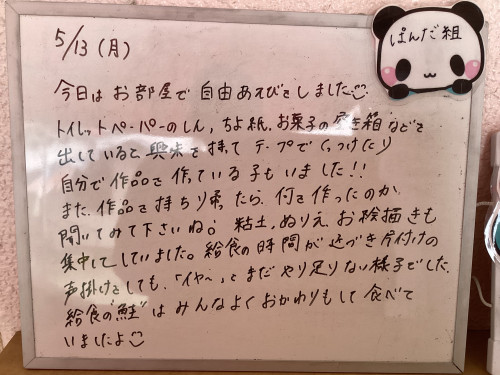 ぱんだ組
5/13(月)
今日はお部屋で自由あそびをしました
トイレットペーパーのしん、ちよ紙、お菓子の空き箱などを
出していると興味を持ってテープでくっつけたり
自分で作品を作っている子もいました!!
また、作品を持ち帰ったら、何を作ったのか
聞いてみて下さいね。粘土、ぬりえ、お絵描きも
集中してしていました。給食の時間が近づき片付けの
声掛けをしても、「イヤ〜」とまだやり足りない様子でした。
給食の"鮭"はみんなよくおかわりもして食べて
いましたよ